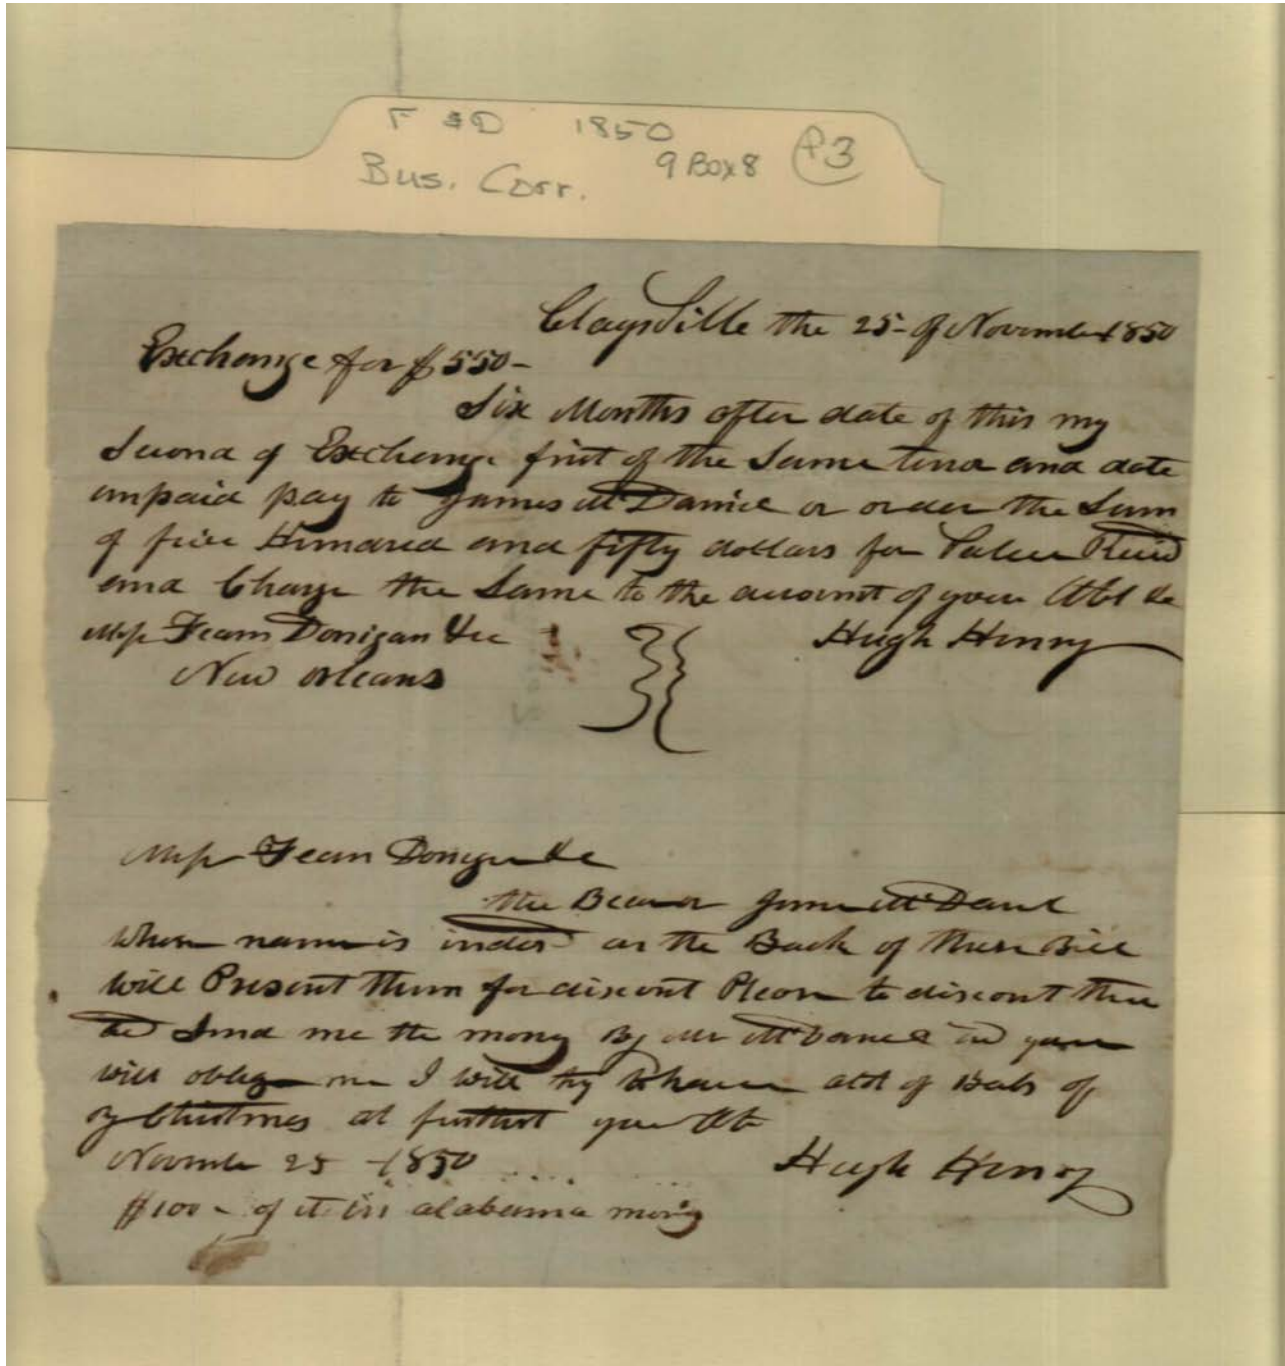 F & D 1850
9 Box 8 P3
Bus. Corr.
Claysville the 25- of November 1850
Exchange for $550-
Six Months after date of this my
Second of Exchange first of the Same tenor and date
unpaid pay to James McDaniel or order the Sum
of five Hundred and fifty dollars for Value Reced
and Charge the Same to the account of your Obt &c
Messr Fearn Donigan &cc Hugh Henry
New orleans
Messr Fearn Donigan &c
the Bearer James McDaniel
whose name is indorsd on the Back of these Bill
will Present them for discont Please to discont them
and Send me the mony By Mr McDaniel and you
will oblige me I will try to have of Bals of
by Christmas at furthest your Obt
November 25 -1850 .... Hugh Henry
$100- of it in alabama mony